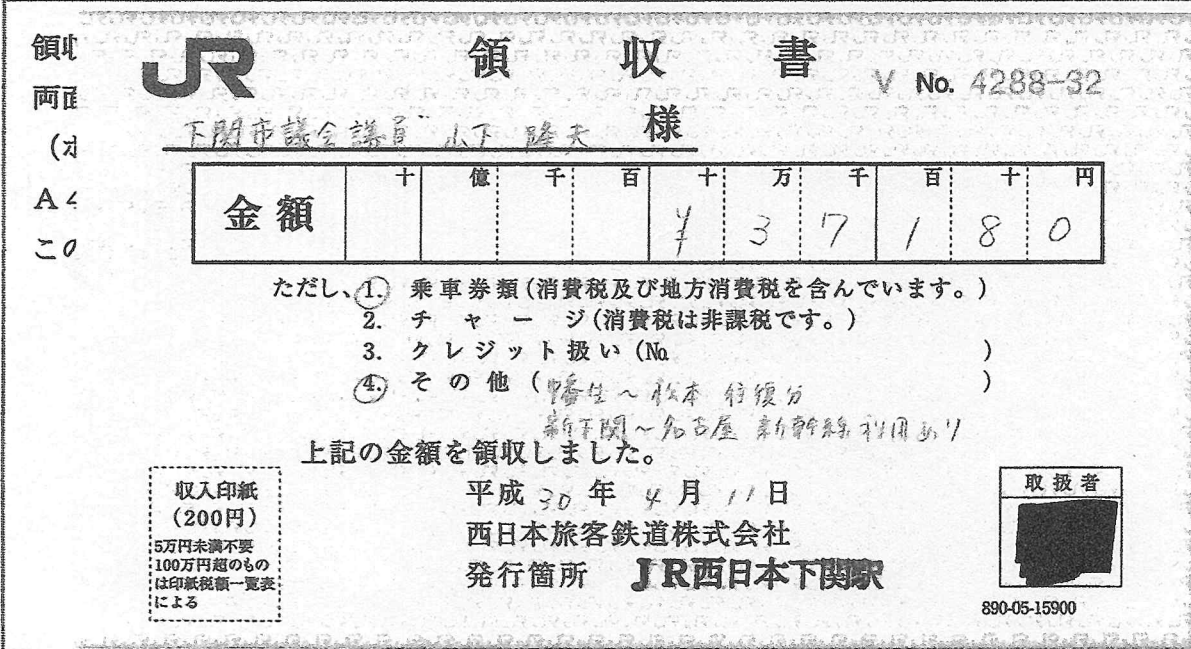 領収
両面
(オ
A 4
この
JR
領収書
V No. 4288-32
下関市議会議員 山下 隆夫 様
金額 十 億 千 百 十 万 千 百 十 円
¥ 3 7 1 8 0
ただし、1. 乗車券類(消費税及び地方消費税を含んでいます。)
2. チャージ(消費税は非課税です。)
3. クレジット扱い(No. )
4. その他( 幡生～松本 往復分 )
新下関～名古屋 新幹線利用あり
上記の金額を領収しました。
平成 30 年 4 月 11 日
西日本旅客鉄道株式会社
発行箇所 JR西日本下関駅
収入印紙
(200円)
5万円未満不要
100万円超のもの
は印紙税額一覧表
による
取扱者
890-05-15900